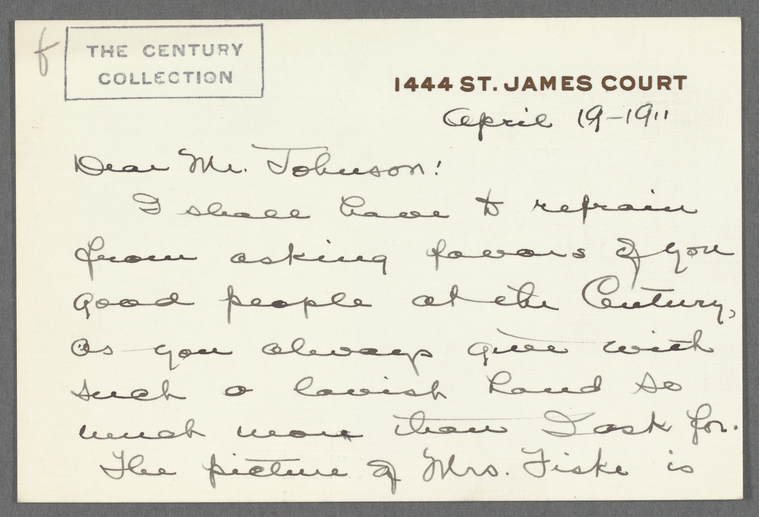 f
THE CENTURY
COLLECTION
1444 ST. JAMES COURT
April 19-1911
Dear Mr. Johnson!
I shall have to refrain
from asking favors of you
good people at the Century,
as you always give with
such a lavish hand so
much more than I ask for.
The picture of Mrs. Fiske is